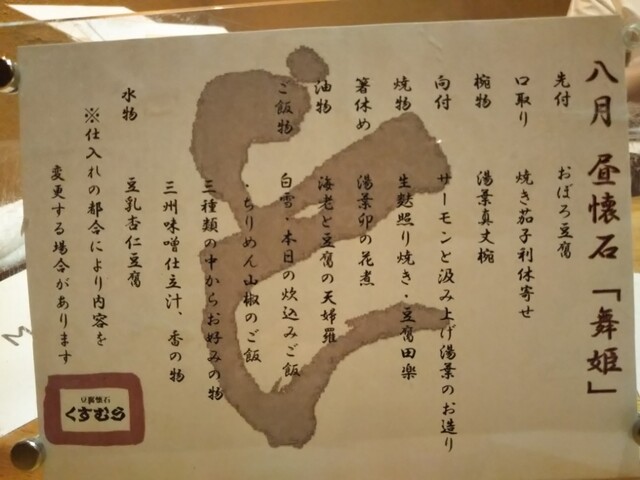 八月 昼懐石「舞姫」
先付 おぼろ豆腐
口取り 焼き茄子利休寄せ
椀物 湯葉真丈椀
向付 サーモンと汲み上げ湯葉のお造り
焼物 生麩照り焼き・豆腐田楽
箸休め 湯葉卯の花煮
油物 海老と豆腐の天婦羅
ご飯物 白雪・本日の炊込みご飯
・ちりめん山椒のご飯
三種類の中からお好みの物
三州味噌仕立汁、香の物
水物 豆乳杏仁豆腐
※仕入れの都合により内容を
変更する場合があります
豆腐懐石
くすむら